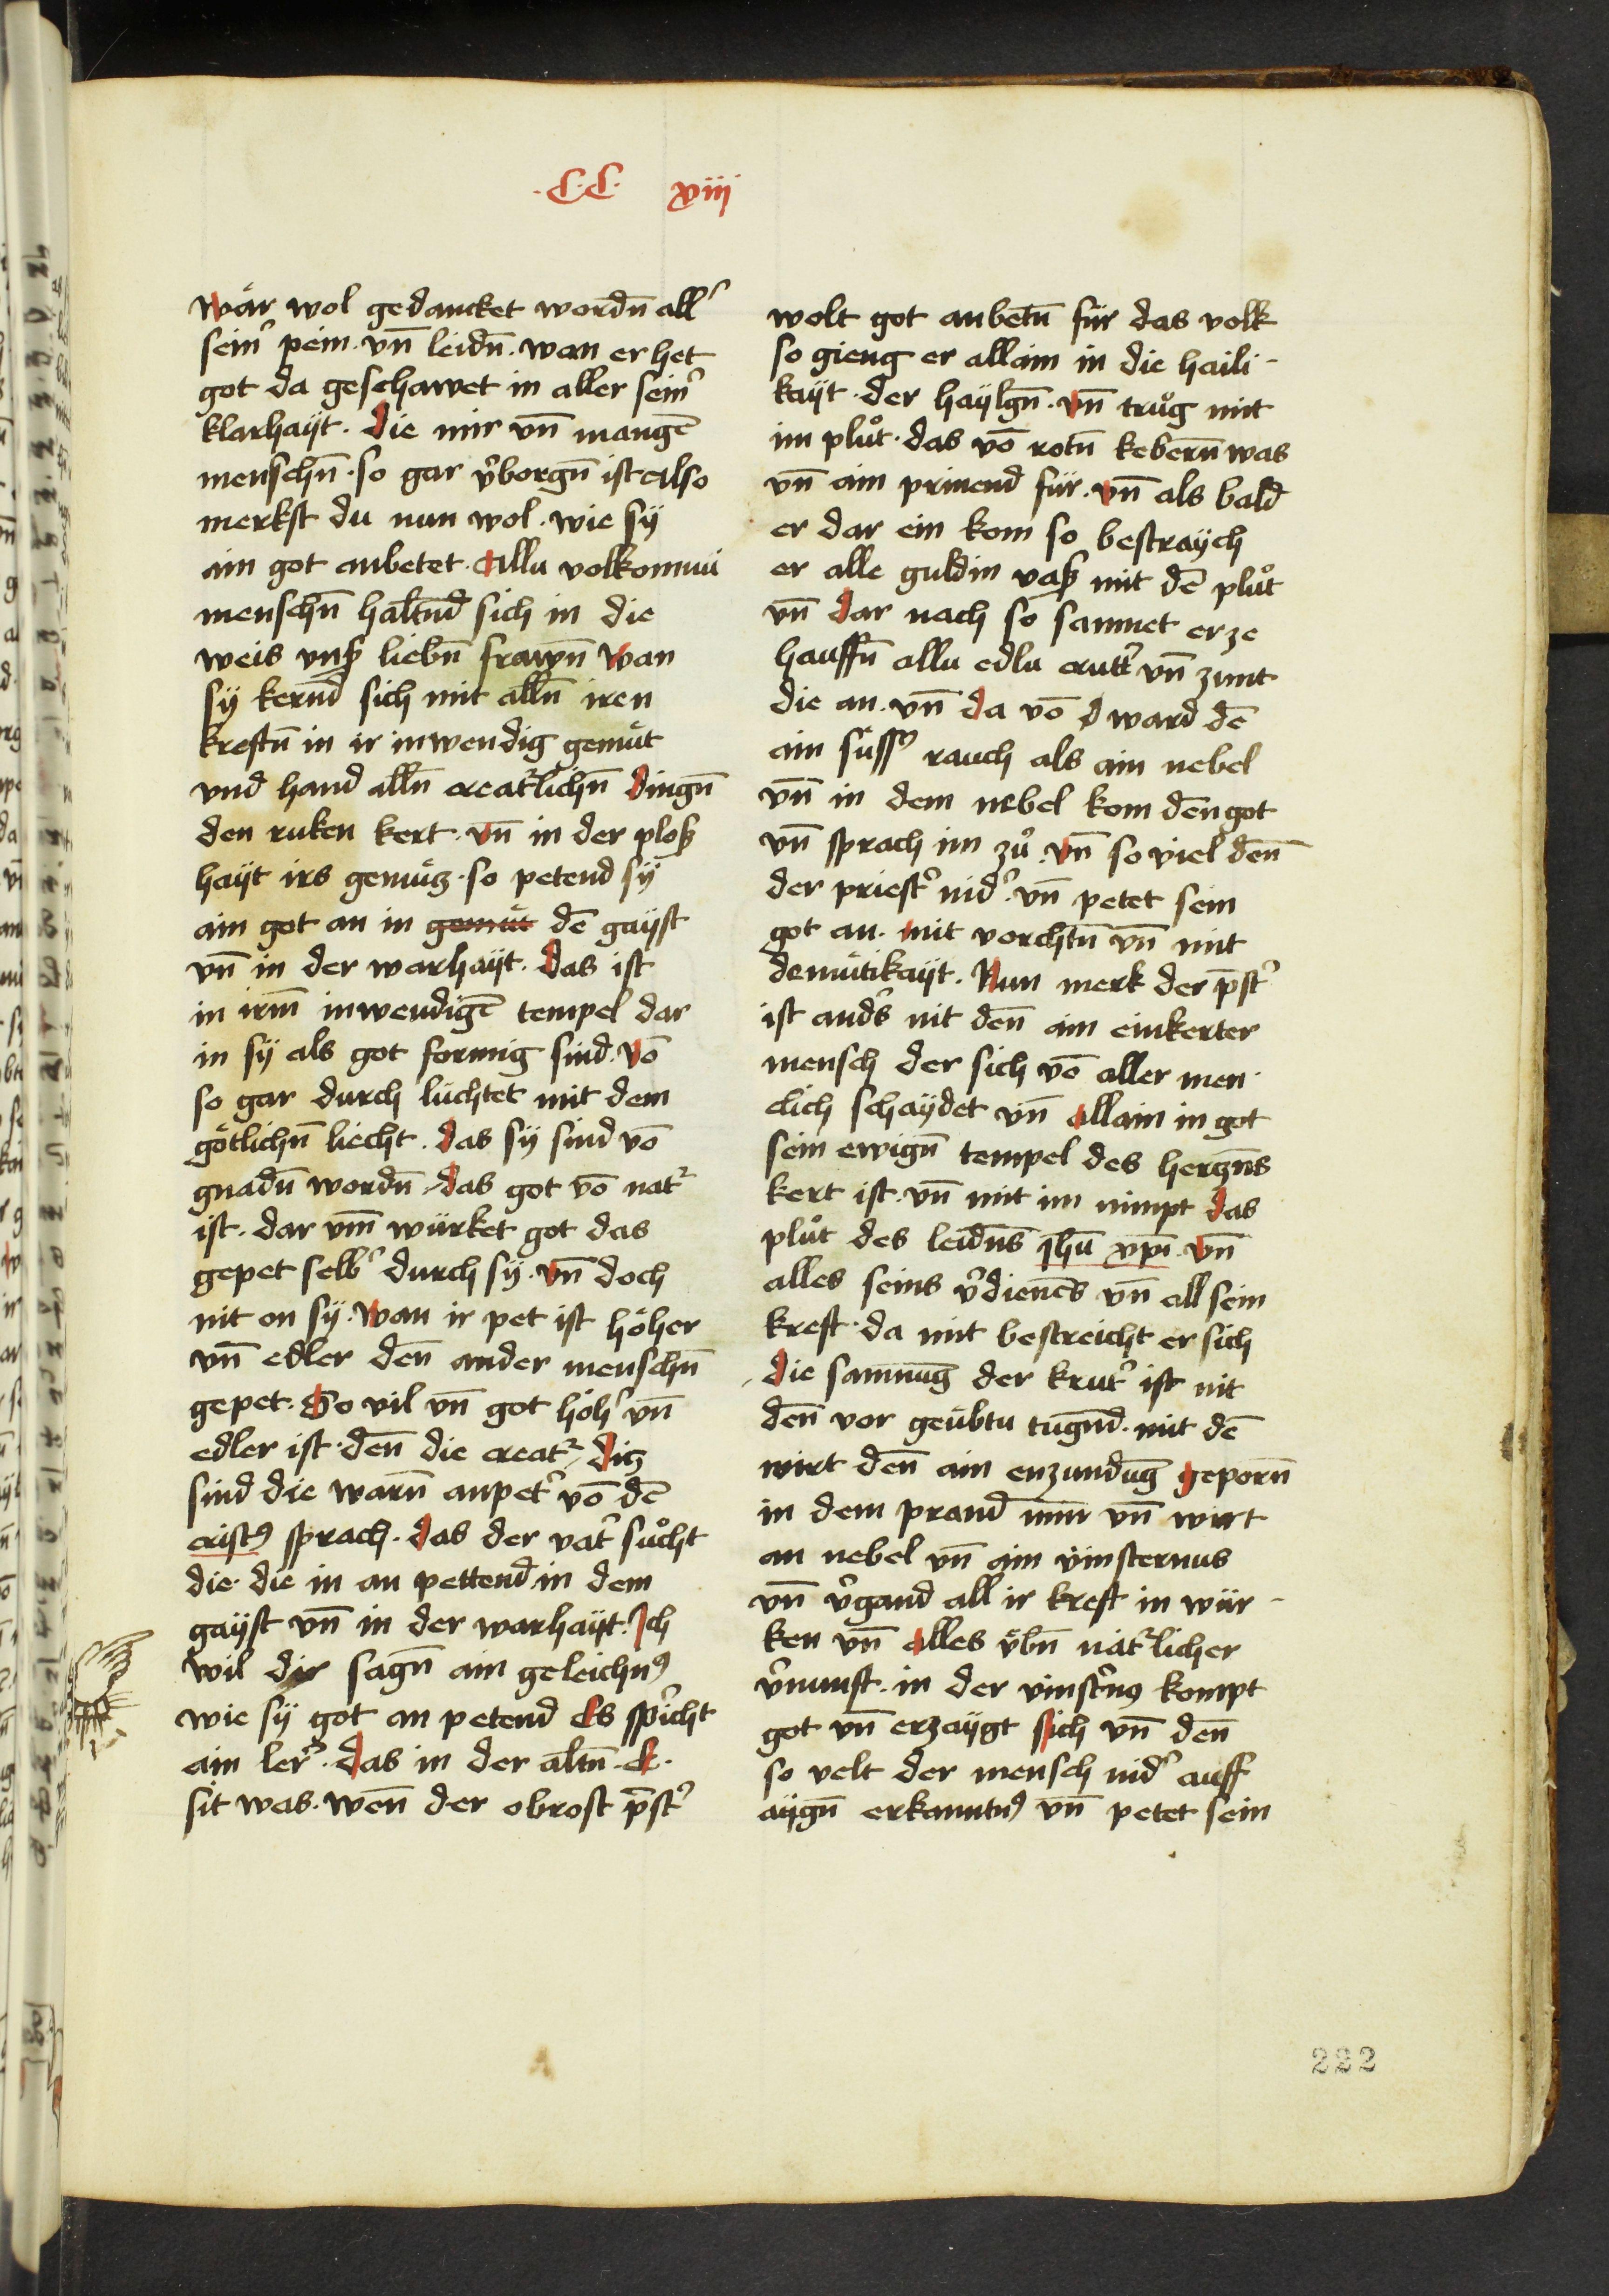 ·C·C· xiij
wär wol gedancket wordn̄ all᾽
sein᾽ pein · vn̄ leidn̄ · wan er het
got da geschawet in aller sein᾽
klarhaÿt · Die mir vn̄ mangē
menschn̄ · so gar v᾽borgn̄ ist Also
merkst du nun wol · wie sÿ
ain got anbetet · Allu volkomnu
menschn̄ haltn̄d sich in die
weis vnß liebn̄ frawn̄ Wan
sÿ kern̄d sich mit alln̄ iren
kreftn̄ in ir inwendig gemüt
vnd hand alln̄ creat᾽lichn̄ Dingn̄
den ruken kert · Vn̄ in der ploß
haÿt irs gemütz · so petend sÿ
ain got an in gemüt dē gaÿst
vn̄ in der warhaÿt · Das ist
in irm̄ inwendigē tempel dar
in sÿ als got formig sind · Vō
so gar durch lüchtet mit dem
götlichn̄ liecht · Das sÿ sind vō
gnadn̄ wordn̄ · Das got vō nat᾽
ist · dar vm̄ würket got das
gepet selb᾽ durch sÿ · Vn̄ doch
nit on sÿ · Wan ir pet ist höher
vn̄ edler den̄ ander menschn̄
gepet · So vil vn̄ got höh᾽ vn̄
edler ist · den̄ die creat᾽ · Ditz
sind die warn̄ anpet᾽ vō dē
cristꝰ sprach · Das der vat᾽ sůcht
die · die in an pettend in dem
gaÿst vn̄ in der warhaÿt · Ich
wil dir sagn̄ ain geleichnꝰ
wie sÿ got an petend Es sp᾽icht
ain ler᾽ · Das in der altn̄ · E ·
sit was · wen̄ der obrost p̄st᾽
wolt got anbetn̄ für das volk
so gieng er allain in die haili-
kaÿt · der haÿlgn̄ · Vn̄ trůg mit
im plůt · das vō rotn̄ kebern̄ was
vn̄ ain prinend für · Vn̄ als bald
er dar ein kom so bestraÿch
er alle guldin vaß mit dē plůt
vn̄ Dar nach so samnet er ze
hauffn̄ allu edlu crutt᾽ vn̄ zunt
die an · vn̄ Da vō d ward dē
ain süssꝰ rauch als ain nebel
vn̄ in dem nebel kom den̄ got
vn̄ sprach im zů · Vn̄ so viel den̄
der priest᾽ nid᾽ · vn̄ petet sein
got an · mit vorchtn̄ vn̄ mit
demütikaÿt · Nun merk der p̄st᾽
ist and᾽s nit den̄ ain einkerter
mensch der sich vō aller men-
clich schaÿdet vn̄ Allain in got
sein ewign̄ tempel des hertzn̄s
kert ist · vn̄ mit im nimpt Das
plůt des leidn̄s Jhū xp̄i · Vn̄
alles seins v᾽dienēs vn̄ all sein
kreft · da mit bestreicht er sich
Die samnūg der krut᾽ ist nit
den̄ vor geübtu tugn̄d · mit dē
wirt den̄ ain enzundūg Geporn̄
in dem prand vn̄ wirt
an nebel vn̄ ain vinsternus
vn̄ v᾽gand all ir kreft in wür-
ken vn̄ Alles vbn̄ nat᾽licher
v᾽nunft · in der vinst᾽nꝰ kompt
got vn̄ erzaÿgt Sich vn̄ den̄
so velt der mensch nid᾽ auff
aÿgn̄ erkanntnꝰ vn̄ petet sein
222